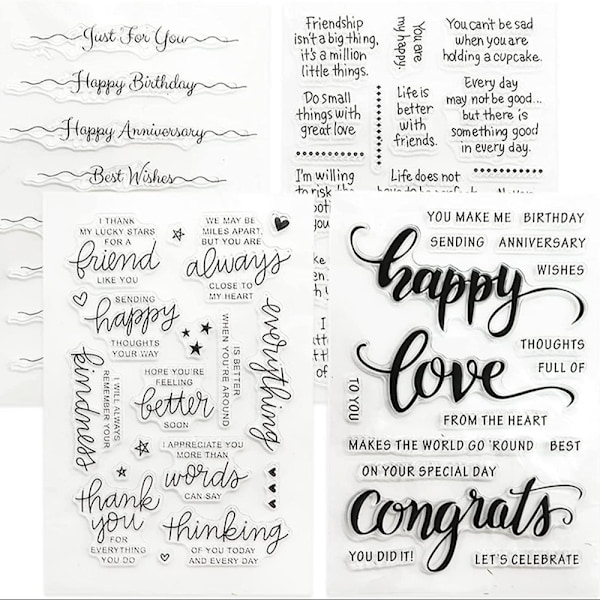 Just For You
Happy Birthday
Happy Anniversary
Best Wishes
Friendship
isn't a big thing,
it's a million
little things.
You are
my happy.
You can't be sad
when you are
holding a cupcake.
Do small
things with
great love
Life is
better
with
friends.
Every day
may not be good...
but there is
something good
in every day.
I'm willing
to risk
Life does not
I THANK
MY LUCKY STARS
FOR A
friend
LIKE YOU
WE MAY BE
MILES APART,
BUT YOU ARE
always
CLOSE TO
MY HEART
SENDING
happy
THOUGHTS
YOUR WAY
everything
IS BETTER
WHEN YOU'RE AROUND
kindness
I WILL ALWAYS
REMEMBER YOUR
HOPE YOU'RE
FEELING
better
SOON
I APPRECIATE YOU
MORE THAN
words
CAN SAY
thank
you
FOR
EVERYTHING
YOU DO
thinking
OF YOU TODAY
AND EVERY DAY
YOU MAKE ME BIRTHDAY
SENDING ANNIVERSARY
happy
WISHES
THOUGHTS
love
FULL OF
TO YOU
FROM THE HEART
MAKES THE WORLD GO 'ROUND BEST
ON YOUR SPECIAL DAY
Congrats
YOU DID IT! LET'S CELEBRATE